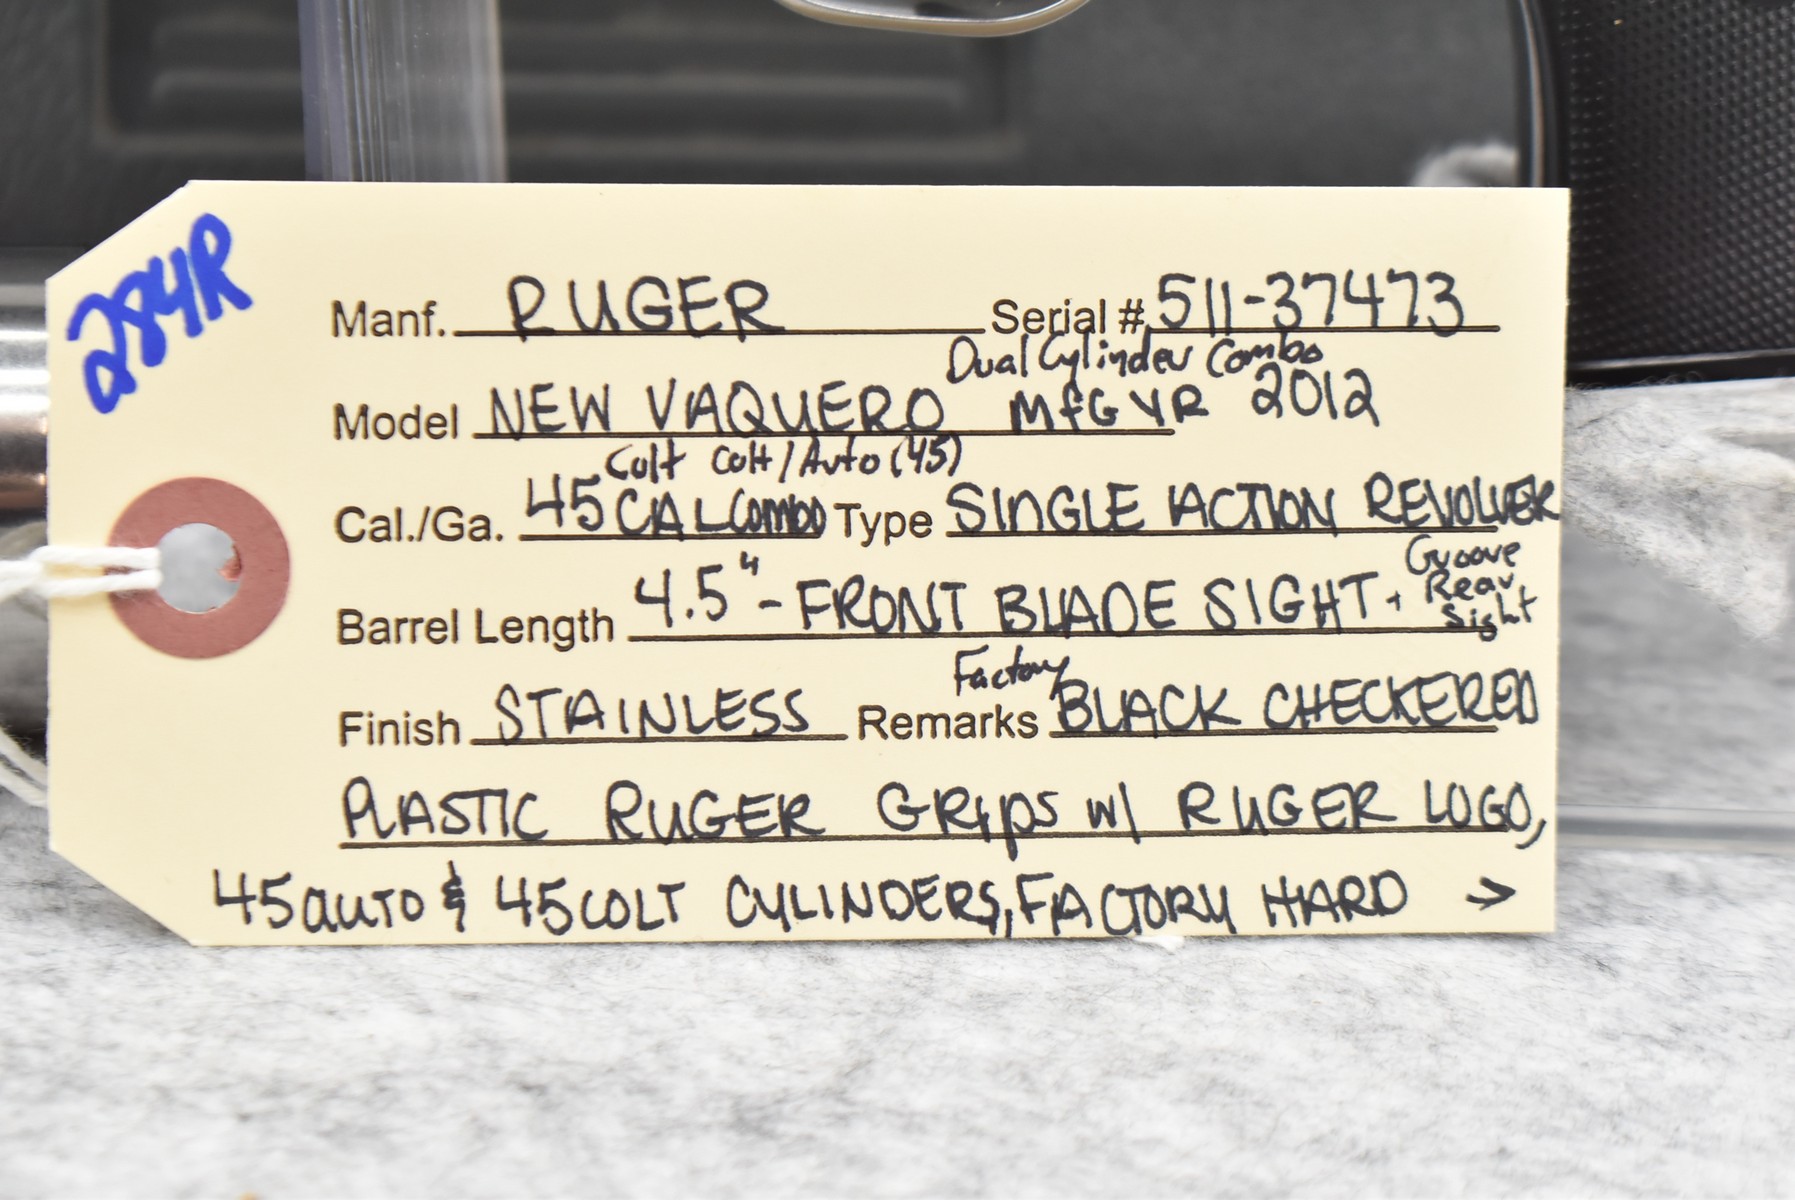 284R
Manf. RUGER Serial # 511-37473
Dual Cylinder Combo
Model NEW VAQUERO MFG YR 2012
Colt Colt/Auto (45)
Cal./Ga. 45 CAL Combo Type SINGLE ACTION REVOLVER
Groove
Barrel Length 4.5" - FRONT BLADE SIGHT + Rear
Sight
Factory
Finish STAINLESS Remarks BLACK CHECKERED
PLASTIC RUGER GRIPS W/ RUGER LOGO,
45 AUTO & 45 COLT CYLINDERS, FACTORY HARD →